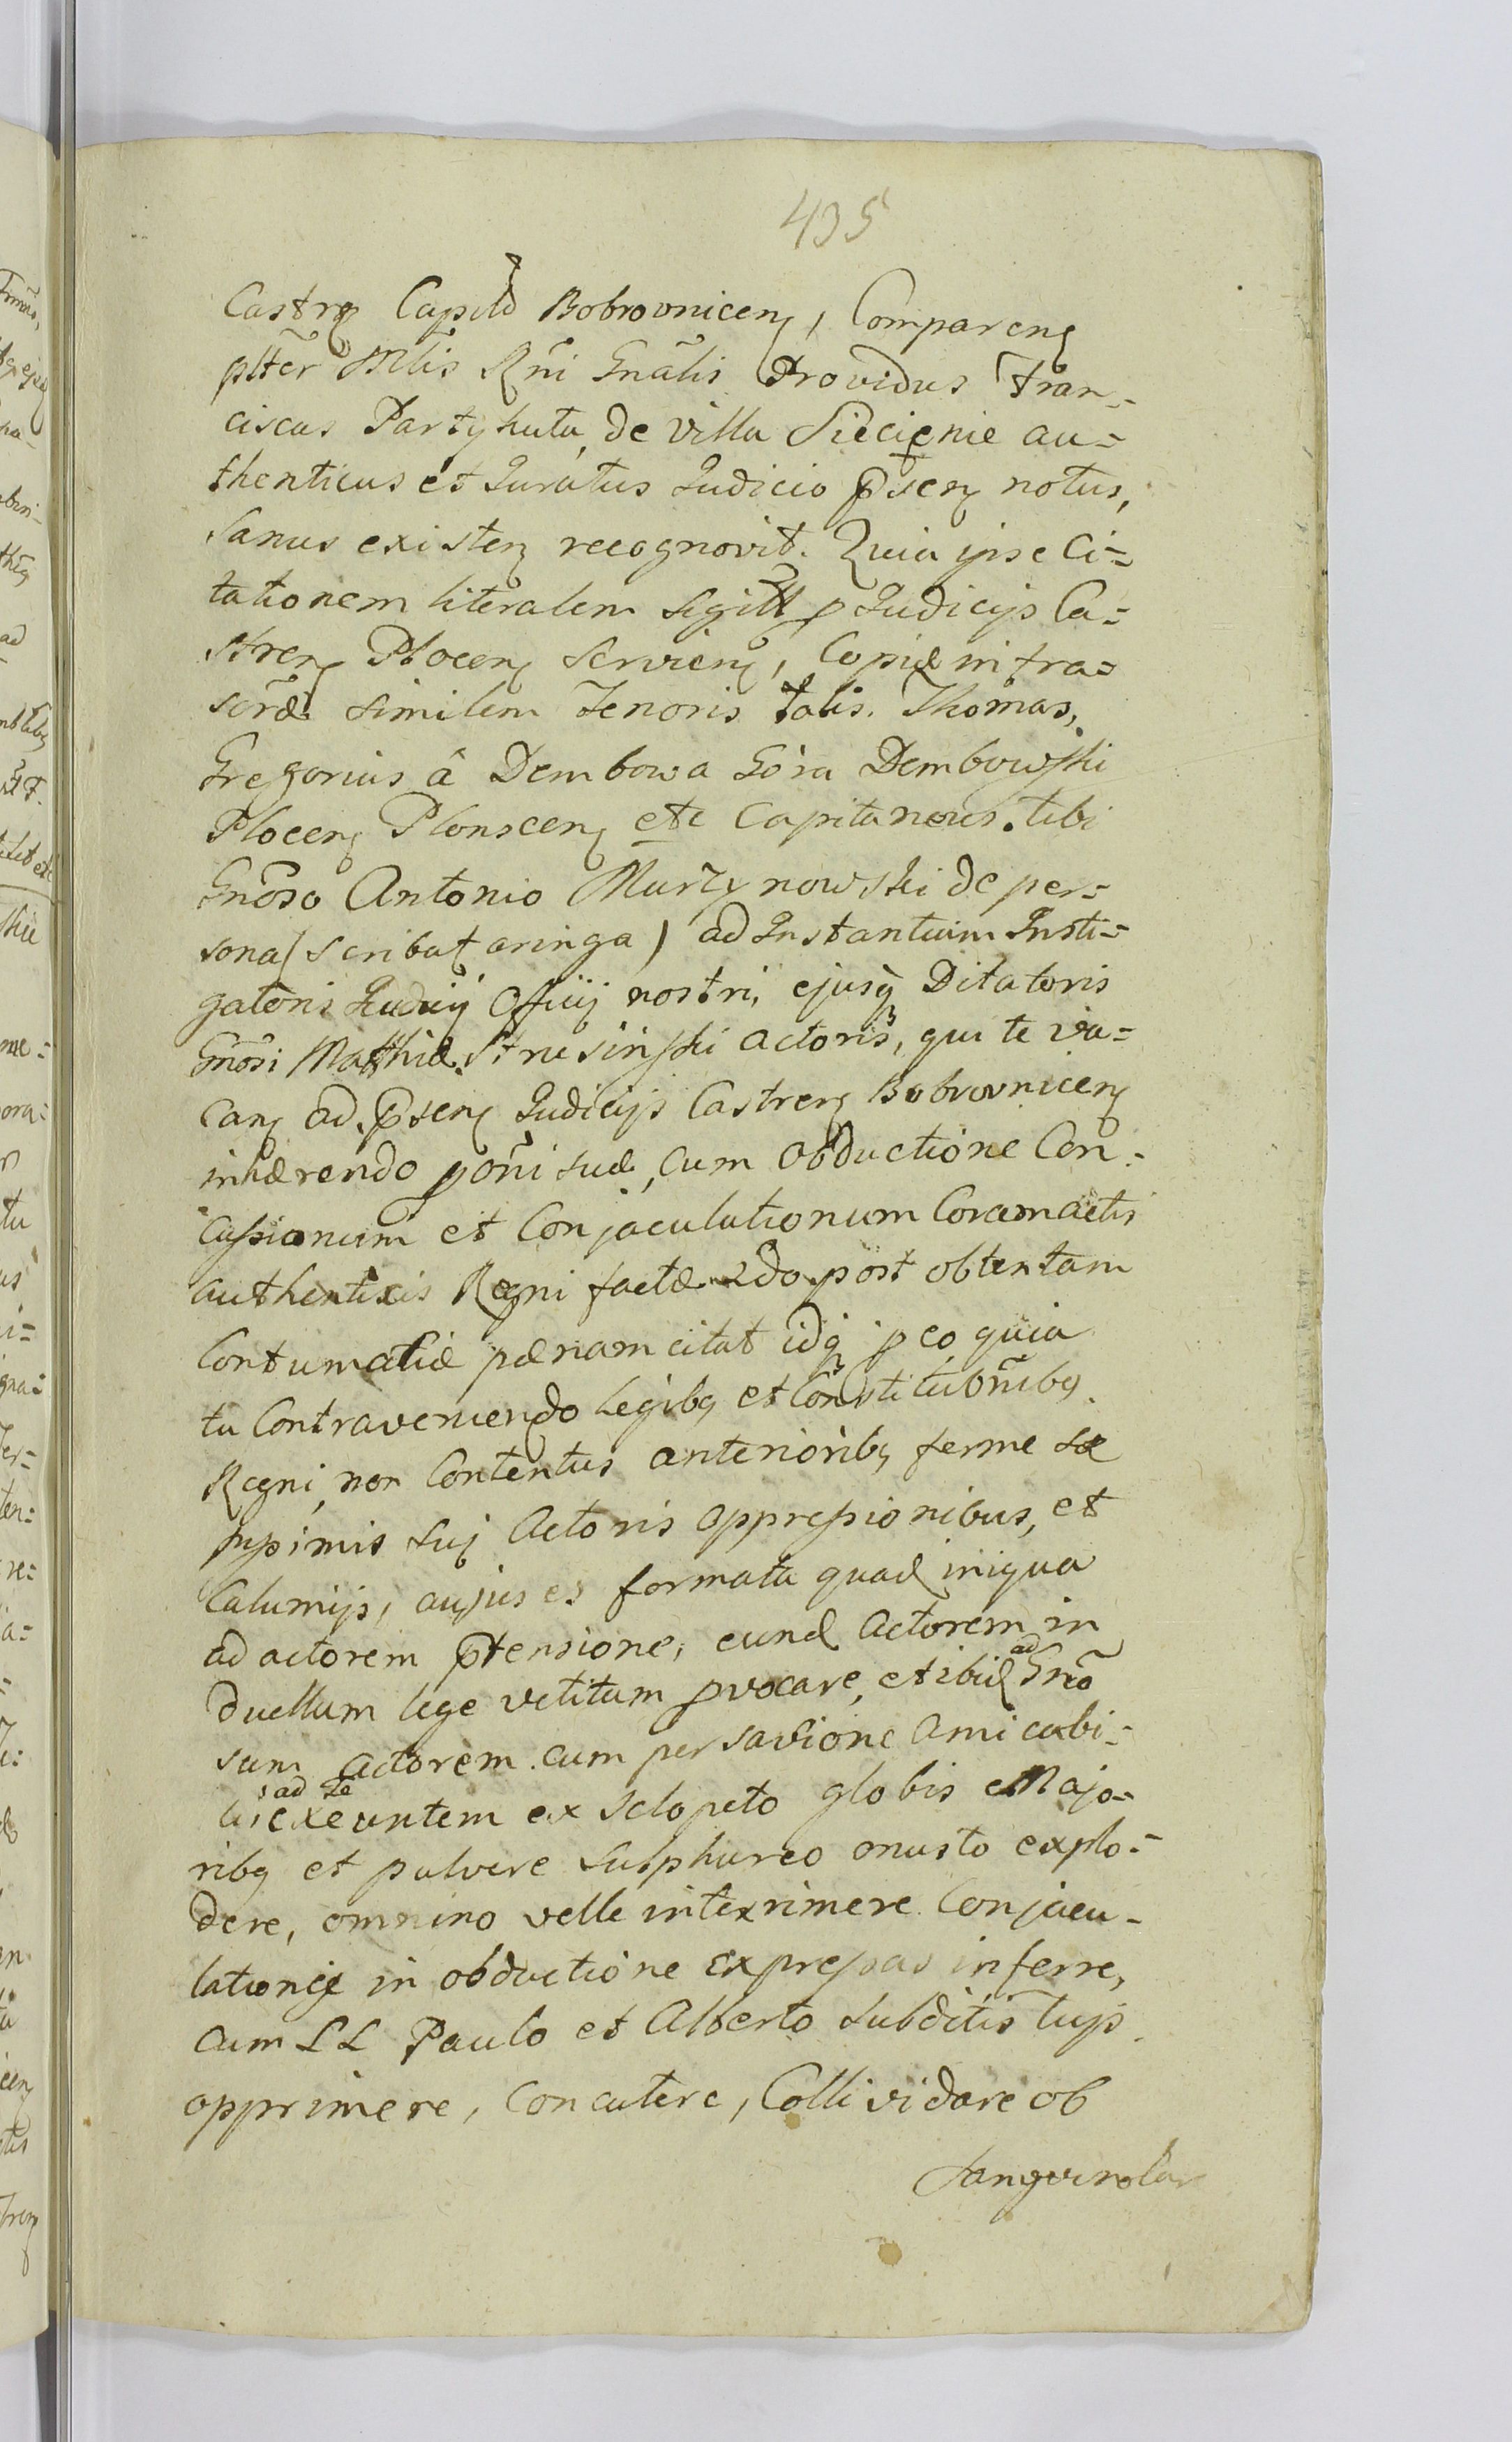 435
Castrῳ Capitῳ Bobrovniceng, Compareng
pltēr Mlis Rñi Gnālis Providus Fran-
ciscus Partyhuta de Villa Siecienie au=
thenticus et Juratus Judicio p̄sen notus,
sanus existen recognovit. Quia ipse Ci=
tationem literalem Sigill p Judicijs Ca=
stren Plocen Servien, Copiæ infra=
scrœ similem Tenoris talis. Thomas,
Gregorius â Dembowa Góra Dembowski
Plocen Plonscen etc Capitaneus. tibi
Gnōso Antonio Murzynowski de per=
sona (scribat aringa) ad Instantiam Insti=
gatoris Judicij Officij nostri, ejusq Dilatoris
Gnōsi Mathiæ Strusinski Actoris, qui te va=
can ad p̄sen Judicijs Castren Bobrovnicen
inhærendo põni suæ, cum Obductione Con=
cussionum et Conjaculationum Coram actis
authenticis Regni factæ 2do post obtentam
Contumatiæ pænam citat idq p eo quia
tu Contraveniendo Legibq et Constitutõnibq
Regni, non Contentus anterioribq ferme sæ
pissimis suj Actoris oppressionibus, et
Calumijs, cujus es formata quad iniqua
ad actorem p̄tensione, eund Actorem in
Duellum lege vetitum pvocare, et ibid ad Gnō
sum Actorem cum persvasione amicabi-
li, ad te exeuntem ex sclopeto globis Majo=
ribq et pulvere sulphureo onusto explo=
dere, omnino velle interimere Conjacu-
lationes in obductione expressas inferre,
cum LL Paulo et Alberto subditis tujs
opprimere, concutere, Collividare ob
Sanguinolen